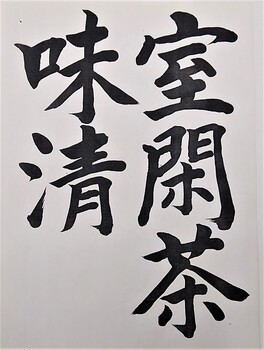 室閑茶
味清